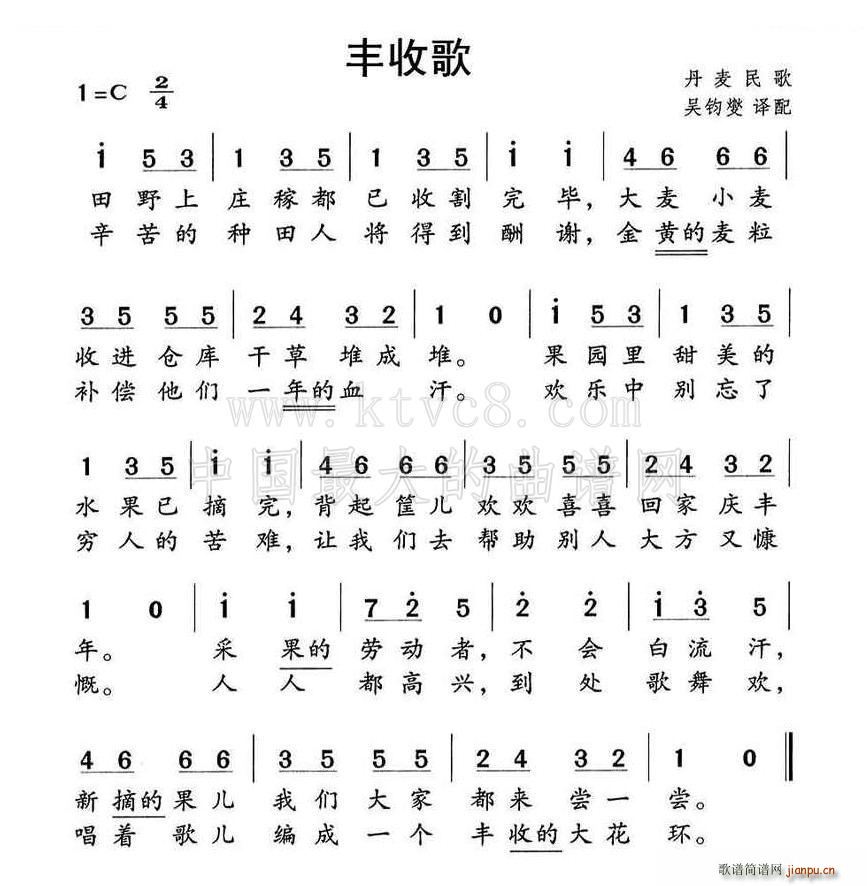 丰收歌
1=C 2/4
丹麦民歌
吴钧燮 译配
i 5 3 | 1 3 5 | 1 3 5 | i i | 4 6 6 6 |
田野上庄稼都已收割完毕，大麦小麦
辛苦的种田人将得到酬谢，金黄的麦粒
3 5 5 5 | 2 4 3 2 | 1 0 | i 5 3 | 1 3 5 |
收进仓库干草堆成堆。果园里甜美的
补偿他们一年的血汗。欢乐中别忘了
www.ktvc8.com
1 3 5 | i i | 4 6 6 6 | 3 5 5 5 | 2 4 3 2 |
中国最大的曲谱网
水果已摘完，背起筐儿欢欢喜喜回家庆丰
穷人的苦难，让我们去帮助别人大方又慷
1 0 | i i | 7 2 5 | 2 2 | i 3 5 |
年。采果的劳动者，不会白流汗，
慨。人人都高兴，到处歌舞欢，
4 6 6 6 | 3 5 5 5 | 2 4 3 2 | 1 0 ‖
新摘的果儿我们大家都来尝一尝。
唱着歌儿编成一个丰收的大花环。
歌谱简谱网
jianpu.cn